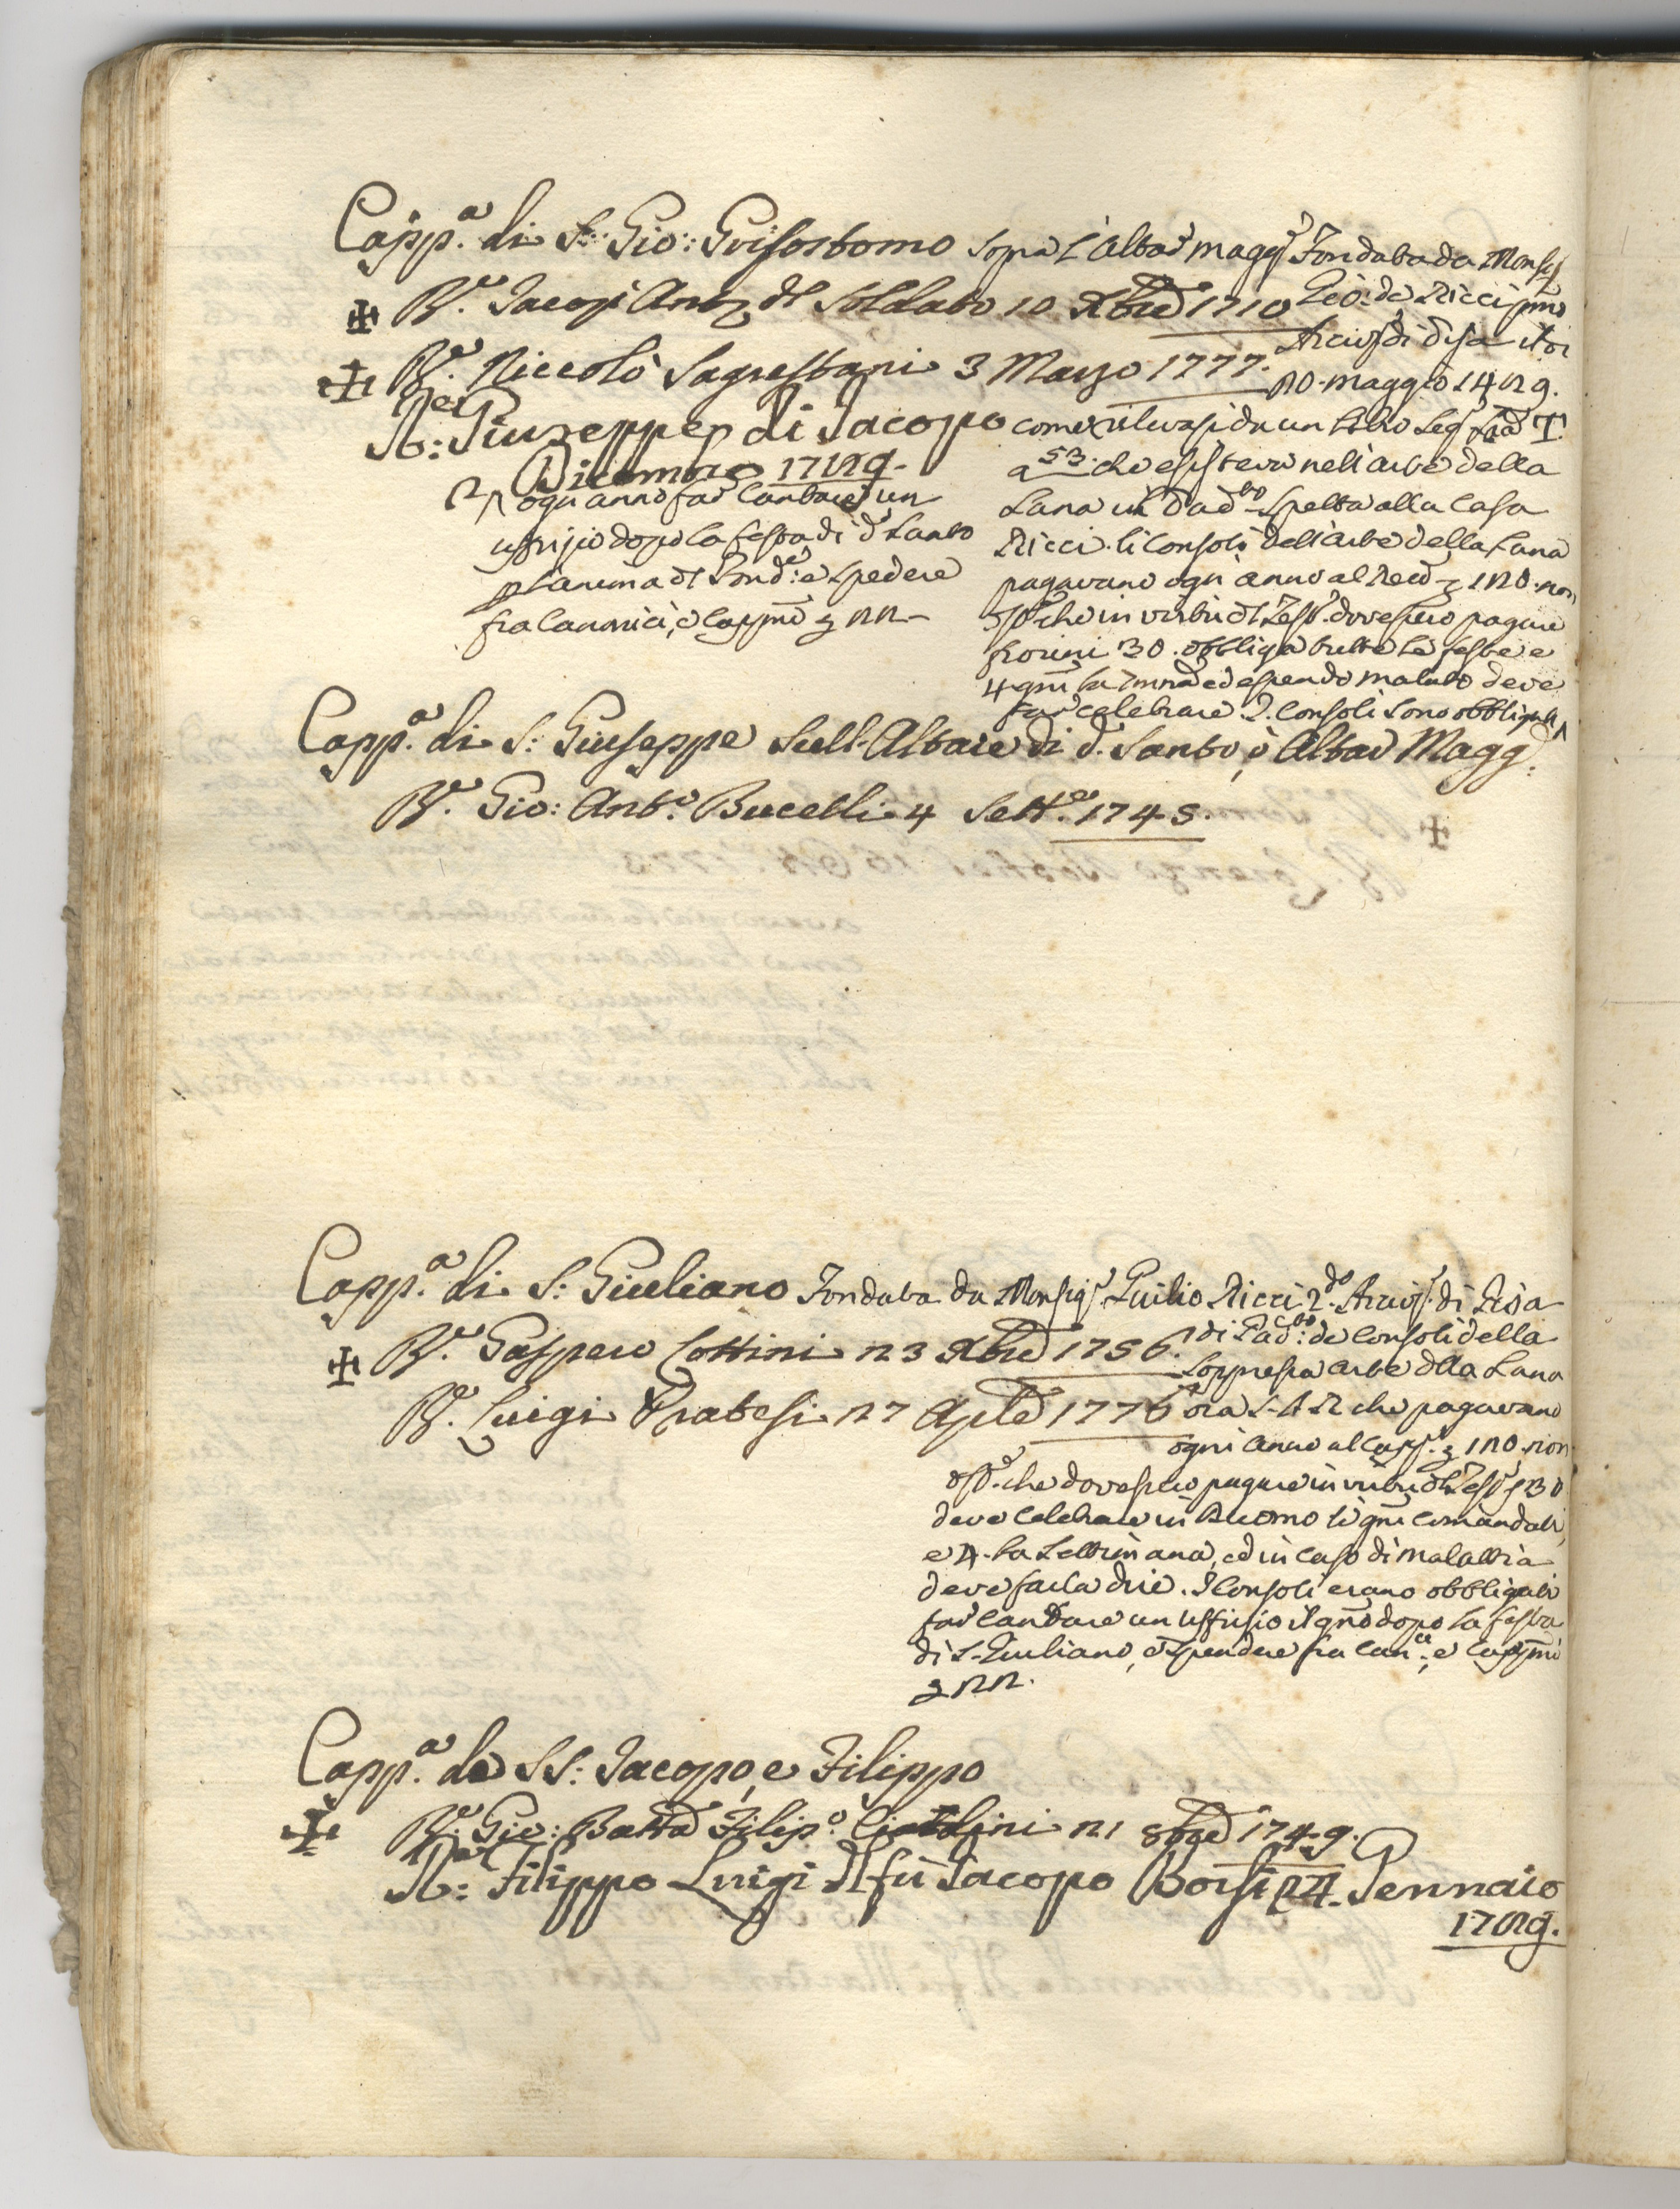 Capp.a di S. Gio: Grisostomo sopra l'Altar magg.r Fondata da Monsig.r
R.e Jacopo Ant.o del Soldato 10 Xbre 1710
Gio: de Ricci pmo
Arciv. di Pisa it or
R.e Niccolò Sagrestani 3 Marzo 1777.
20. maggio 1429.
R: Giuseppe di Jacopo
come rilevasi da un Libro Seg.to T.
Dicembre 1729.
a 53. che esisteva nell'arte della
ogni anno far cantare un
Lana il Padto spetta alla Casa
uffizio dopo la festa di do Santo
Ricci. li Consoli dell'arte della Lana
p l'anima del Fond.e e spedere
pagavano ogni anno al Red 120. non
fra Canonici, e Cappni 22
che in virtù del Test.o dovessero pagare
fiorini 30. obbliga tutte le feste e
4 gni la Smna ed essendo malato deve
far celebrare I. Consoli sono obbligati
Capp.a di S. Giuseppe sull'Altare di d. Santo, ò Altar Magg.
R.e Gio: Ant.o Bucelli 4 Sett.e 1745.
Capp.a di S: Giuliano Fondata da Monsig.r Giulio Ricci 2.do Arciv. di Pisa
R.e Gaspero Cottini 23 Xbre 1756.
di Padto: de Consoli della
soppressa arte dlla Lana
R.e Luigi Pratesi 27 Aple 1776
ora S. A. R che pagavano
ogni anno al Capp. 120. non
che dovessero pagare in virtù del Test.o 30
deve celebrare in Duomo li gni comandati,
e 4. la Settimana, ed in caso di malattia
deve farla dire. I Consoli erano obbligati
far cantare un uffizio il gno dopo la festa
di S. Giuliano, e spendere fra Can.ci, e Cappni
22.
Capp.a de SS: Jacopo, e Filippo
R.e Gio: Batta Filip.o 21 8bre 1749.
R: Filippo Luigi del fù Jacopo Borsi 24. Gennaio
1729.